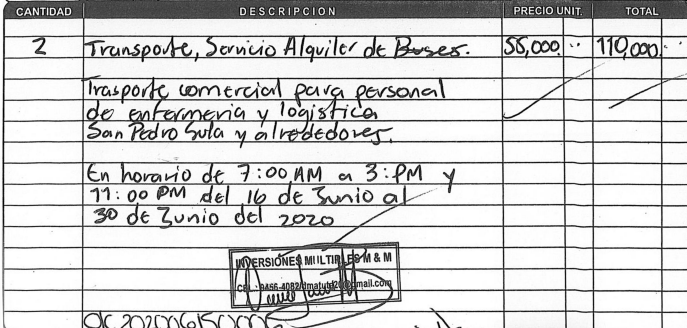 CANTIDAD DESCRIPCION PRECIO UNIT. TOTAL
2 Transporte, Servicio Alquiler de Buses. 55,000.ºº 110,000.ºº
Trasporte comercial para personal
de enfermeria y logistica
San Pedro Sula y alrededores.
En horario de 7:00 AM a 3:PM y
11:00 PM del 16 de Junio al
30 de Junio del 2020
INVERSIONES MULTIPLES M & M
CEL.: 9456-4082/dmatute20@gmail.com